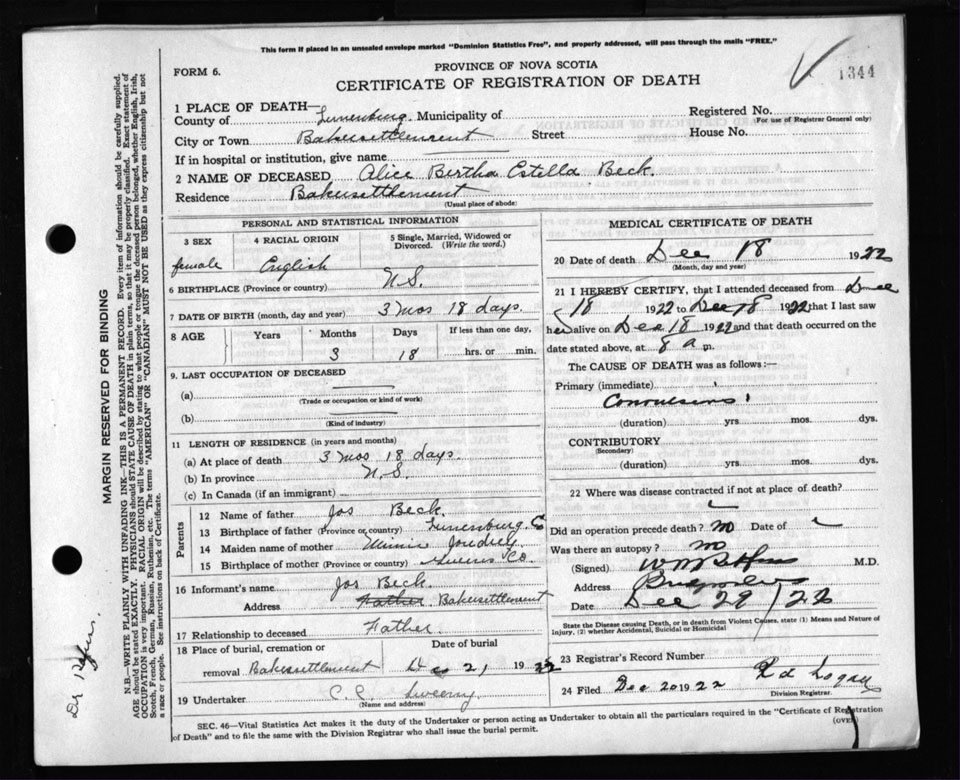 This form if placed in an unsealed envelope marked "Dominion Statistics Free", and properly addressed, will pass through the mails "FREE."
FORM 6.
PROVINCE OF NOVA SCOTIA
CERTIFICATE OF REGISTRATION OF DEATH
1344
1 PLACE OF DEATH—
County of Lunenburg. Municipality of
Registered No.
(For use of Registrar General only)
City or Town Bakersettlement Street House No.
If in hospital or institution, give name
2 NAME OF DECEASED Alice Bertha Estella Beck.
Residence Bakersettlement
(Usual place of abode)
PERSONAL AND STATISTICAL INFORMATION
3 SEX 4 RACIAL ORIGIN 5 Single, Married, Widowed or Divorced. (Write the word.)
female English
6 BIRTHPLACE (Province or country) N.S.
7 DATE OF BIRTH (month, day and year) 3 mos 18 days.
8 AGE Years Months Days If less than one day,
3 18 hrs. or min.
9. LAST OCCUPATION OF DECEASED
(a)
(Trade or occupation or kind of work)
(b)
(Kind of industry)
11 LENGTH OF RESIDENCE (in years and months)
(a) At place of death 3 mos 18 days.
(b) In province N.S.
(c) In Canada (if an immigrant)
Parents
12 Name of father Jos Beck.
13 Birthplace of father (Province or country) Lunenburg. Co
14 Maiden name of mother Minnie Joudrey
15 Birthplace of mother (Province or country) Queens Co.
16 Informant's name Jos Beck.
Address Father Bakersettlement
17 Relationship to deceased Father.
18 Place of burial, cremation or Date of burial
removal Bakersettlement Dec 21, 1922
19 Undertaker C.C. Sweeny
(Name and address)
MEDICAL CERTIFICATE OF DEATH
20 Date of death Dec 18 1922
(Month, day and year)
21 I HEREBY CERTIFY, that I attended deceased from Dec
18 1922 to Dec 18 1922 that I last saw
her alive on Dec 18 1922 and that death occurred on the
date stated above, at 8 a m.
The CAUSE OF DEATH was as follows:—
Primary (immediate)
Convulsions
(duration) yrs mos. dys.
CONTRIBUTORY
(Secondary)
(duration) yrs. mos. dys.
22 Where was disease contracted if not at place of death?
Did an operation precede death? no Date of
Was there an autopsy? no
(Signed) M.D.
Address
Date Dec 29/22
State the Disease causing Death, or in death from Violent Causes, state (1) Means and Nature of
Injury, (2) whether Accidental, Suicidal or Homicidal
23 Registrar's Record Number
24 Filed Dec 20 1922 Logan
Division Registrar.
SEC. 46—Vital Statistics Act makes it the duty of the Undertaker or person acting as Undertaker to obtain all the particulars required in the "Certificate of Registration
of Death" and to file the same with the Division Registrar who shall issue the burial permit.
(OVER)
MARGIN RESERVED FOR BINDING
N.B.—WRITE PLAINLY WITH UNFADING INK—THIS IS A PERMANENT RECORD. Every item of information should be carefully supplied.
AGE should be stated EXACTLY. PHYSICIANS should STATE CAUSE OF DEATH in plain terms, so that it may be properly classified. Exact statement of
OCCUPATION is very important. RACIAL ORIGIN will be described by stating to what people or tongue the deceased person belonged, whether English, Irish,
Scotch, French, German, Russian, Ruthenian, etc. The terms "AMERICAN" OR "CANADIAN" MUST NOT BE USED as they express citizenship but not
a race or people. See instructions on back of Certificate.
Dr